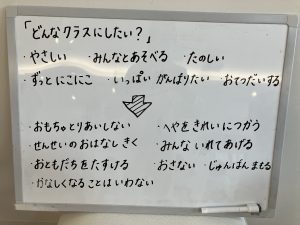 「どんなクラスにしたい？」
・やさしい ・みんなとあそべる ・たのしい
・ずっとにこにこ ・いっぱいがんばりたい ・おてつだいする
・おもちゃとりあいしない ・へやをきれいにつかう
・せんせいのおはなしきく ・みんないれてあげる
・おともだちをたすける ・おさない ・じゅんばんまもる
・かなしくなることはいわない